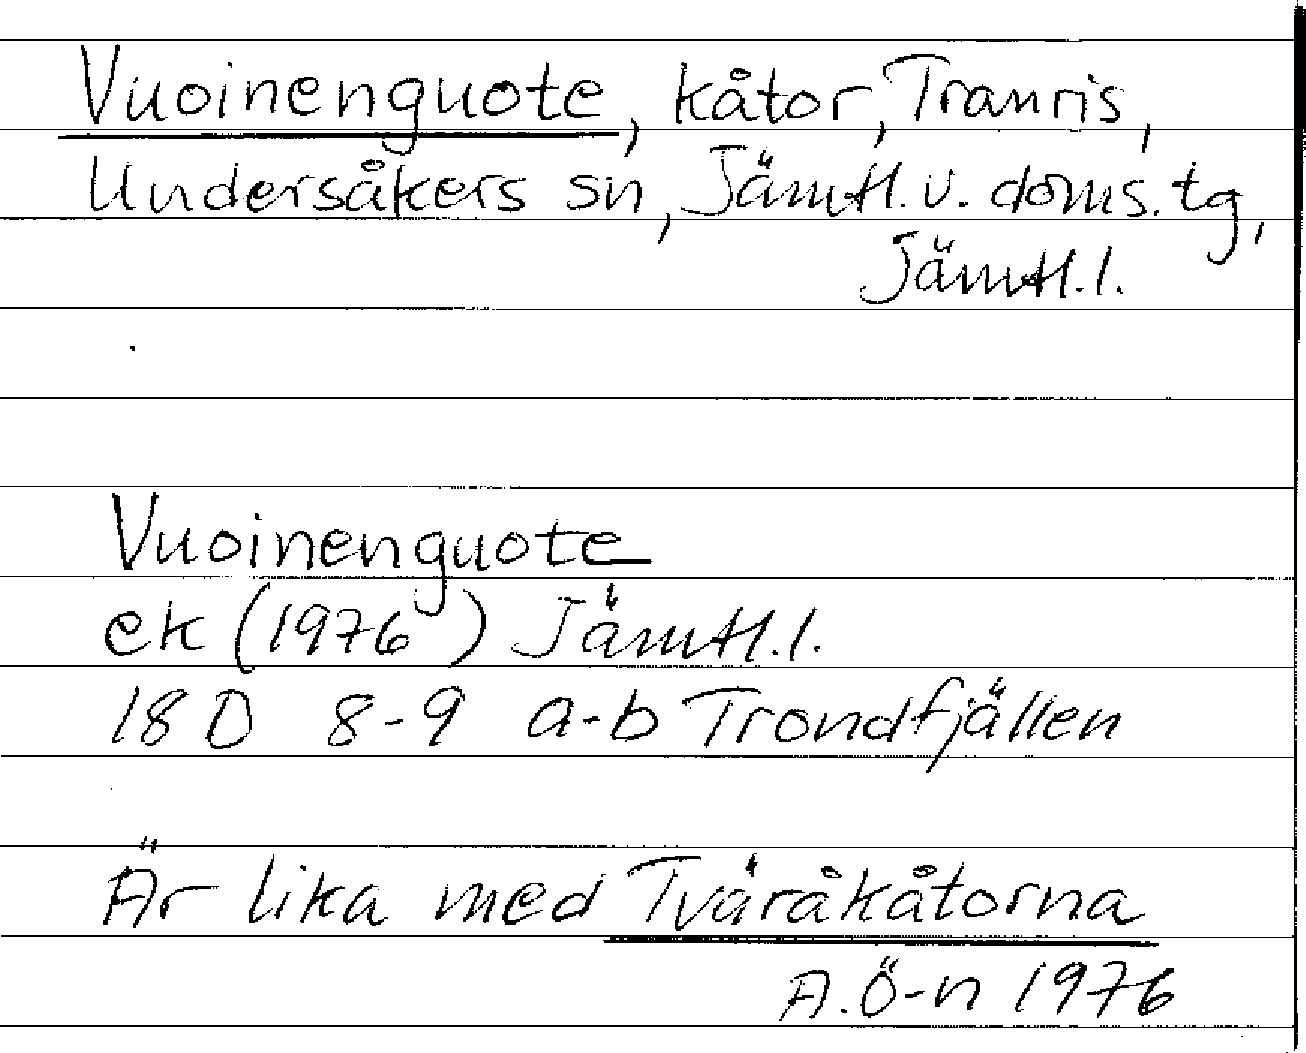 Vuoinenguote, kåtor, Tranris,
Undersåkers sn, Jämtl. v. doms. tg,
Jämtl. l.
Vuoinenguote
ek (1976) Jämtl. l.
18 D 8-9 a-b Trondfjällen
Är lika med Tväråkåtorna
A. Ö-n 1976